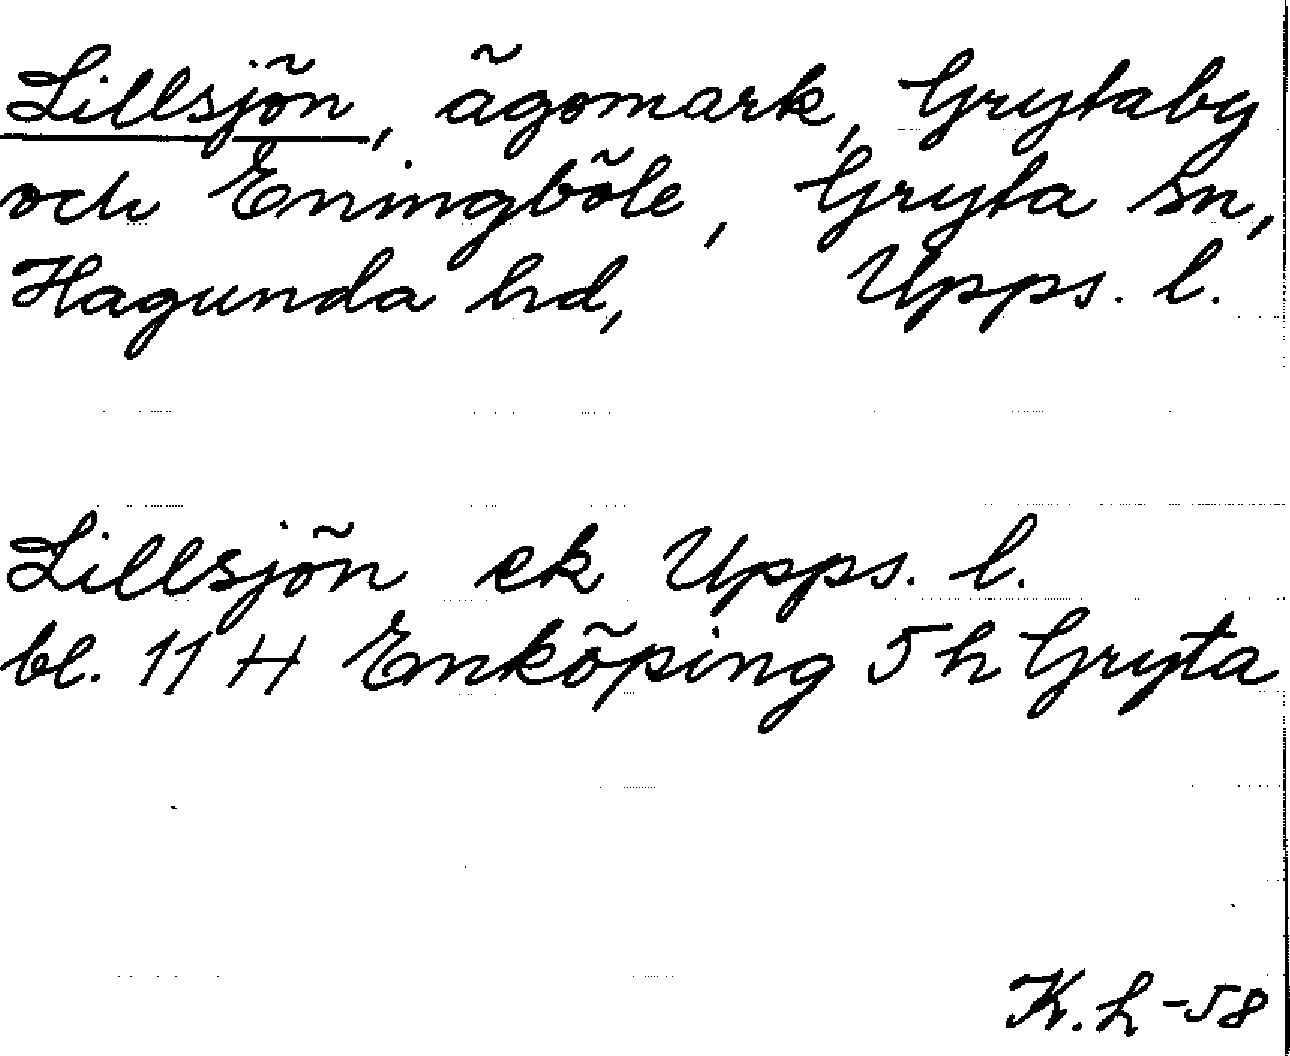 Lillsjön, ägomark, Grytaby
och Eningböle, Gryta sn,
Hagunda hd, Upps. l.
Lillsjön ek Upps. l.
bl. 11 H Enköping 5 h Gryta
K. h -58